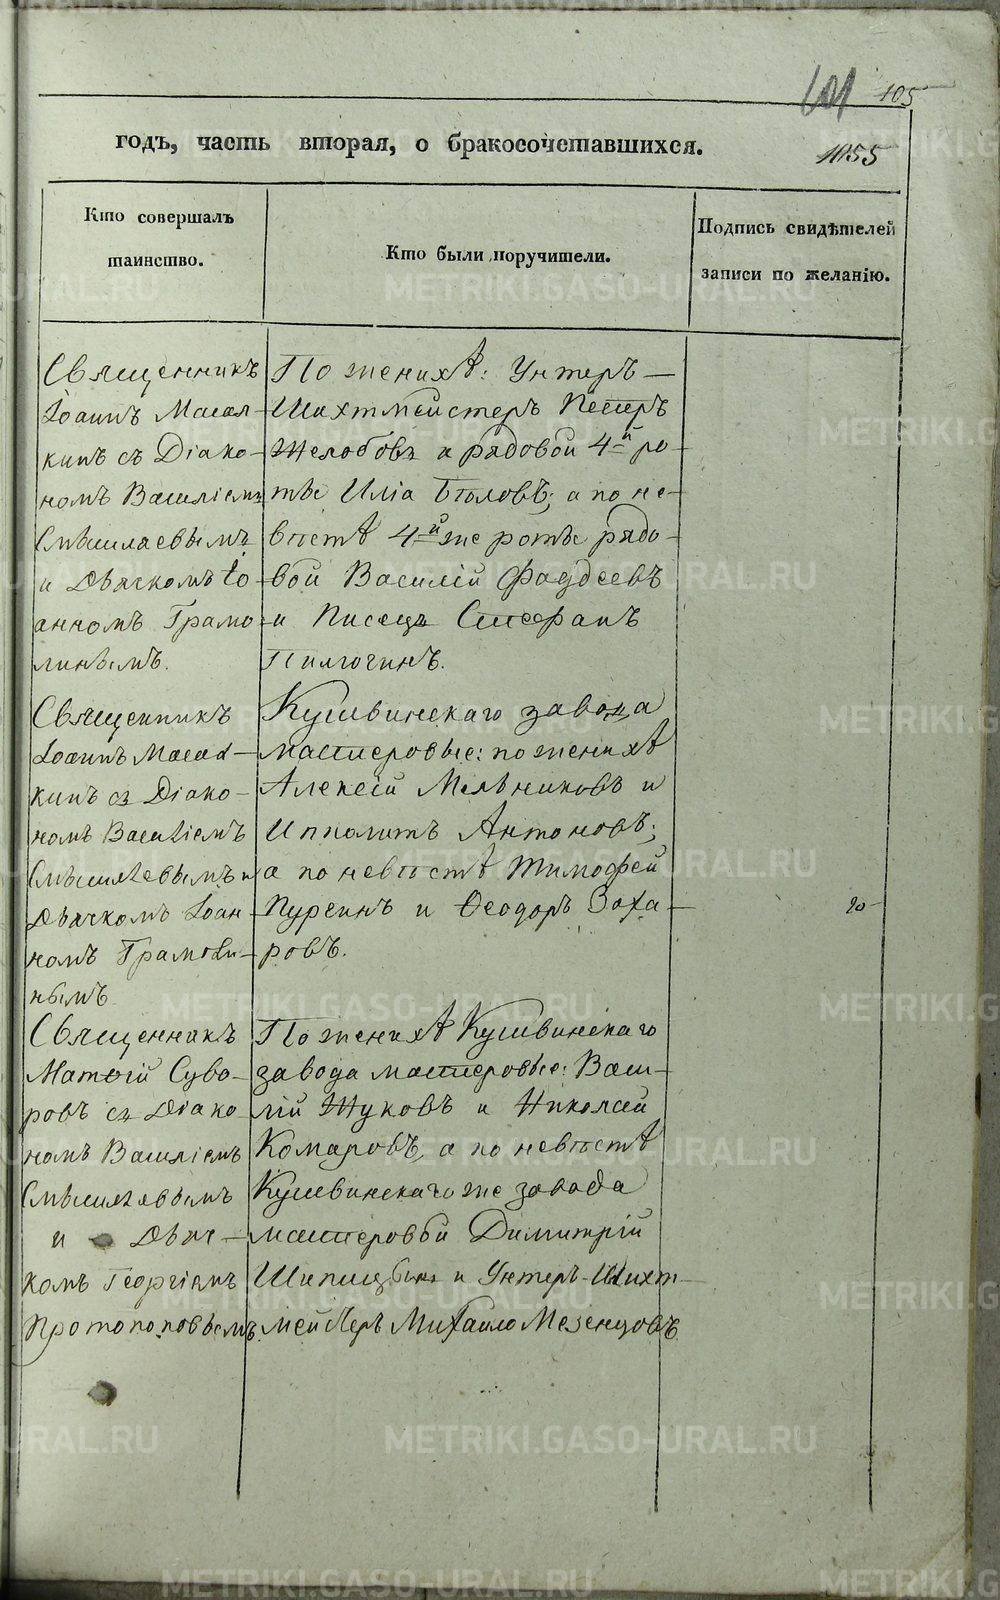 101 105
годъ, часть вторая, о бракосочетавшихся.
1055
Кто совершалъ
таинство.
Кто были поручители.
Подпись свидѣтелей
записи по желанію.
Священникъ
Іоаннъ Масал-
кинъ съ Діако-
номъ Василіемъ
Смышляевымъ
и Дьячкомъ Іо-
анномъ Грамо-
линымъ.
По женихѣ: Унтеръ-
Шихтмейстеръ Петръ
Желобовъ и рядовой 4-й ро-
ты Иліа Бѣловъ; а по не-
вѣстѣ 4-й же роты рядо-
вой Василій Фаддеевъ
и Писецъ Стефанъ
Пилюгинъ.
Священникъ
Іоаннъ Масал-
кинъ съ Діако-
номъ Василіемъ
Смышляевымъ и
Дьячкомъ Іоан-
номъ Грамоли-
нымъ
Кушвинскаго завода
мастеровые: по женихѣ
Алексѣй Мельниковъ и
Ипполитъ Антоновъ;
а по невѣстѣ Тимофей
Пургинъ и Ѳеодоръ Заха-
ровъ.
20
Священникъ
Матѳій Суво-
ровъ съ Діако
номъ Василіемъ
Смышляевымъ
и Дьяч-
комъ Георгіемъ
Протопоповымъ.
По женихѣ Кушвинскаго
завода мастеровые: Васи-
лій Жуковъ и Николай
Комаровъ, а по невѣстѣ
Кушвинскаго же завода
мастеровой Димитрій
Шипицынъ и Унтеръ-Шихт-
мейстеръ Михаило Мезенцовъ.
METRIKI.GASO-URAL.RU